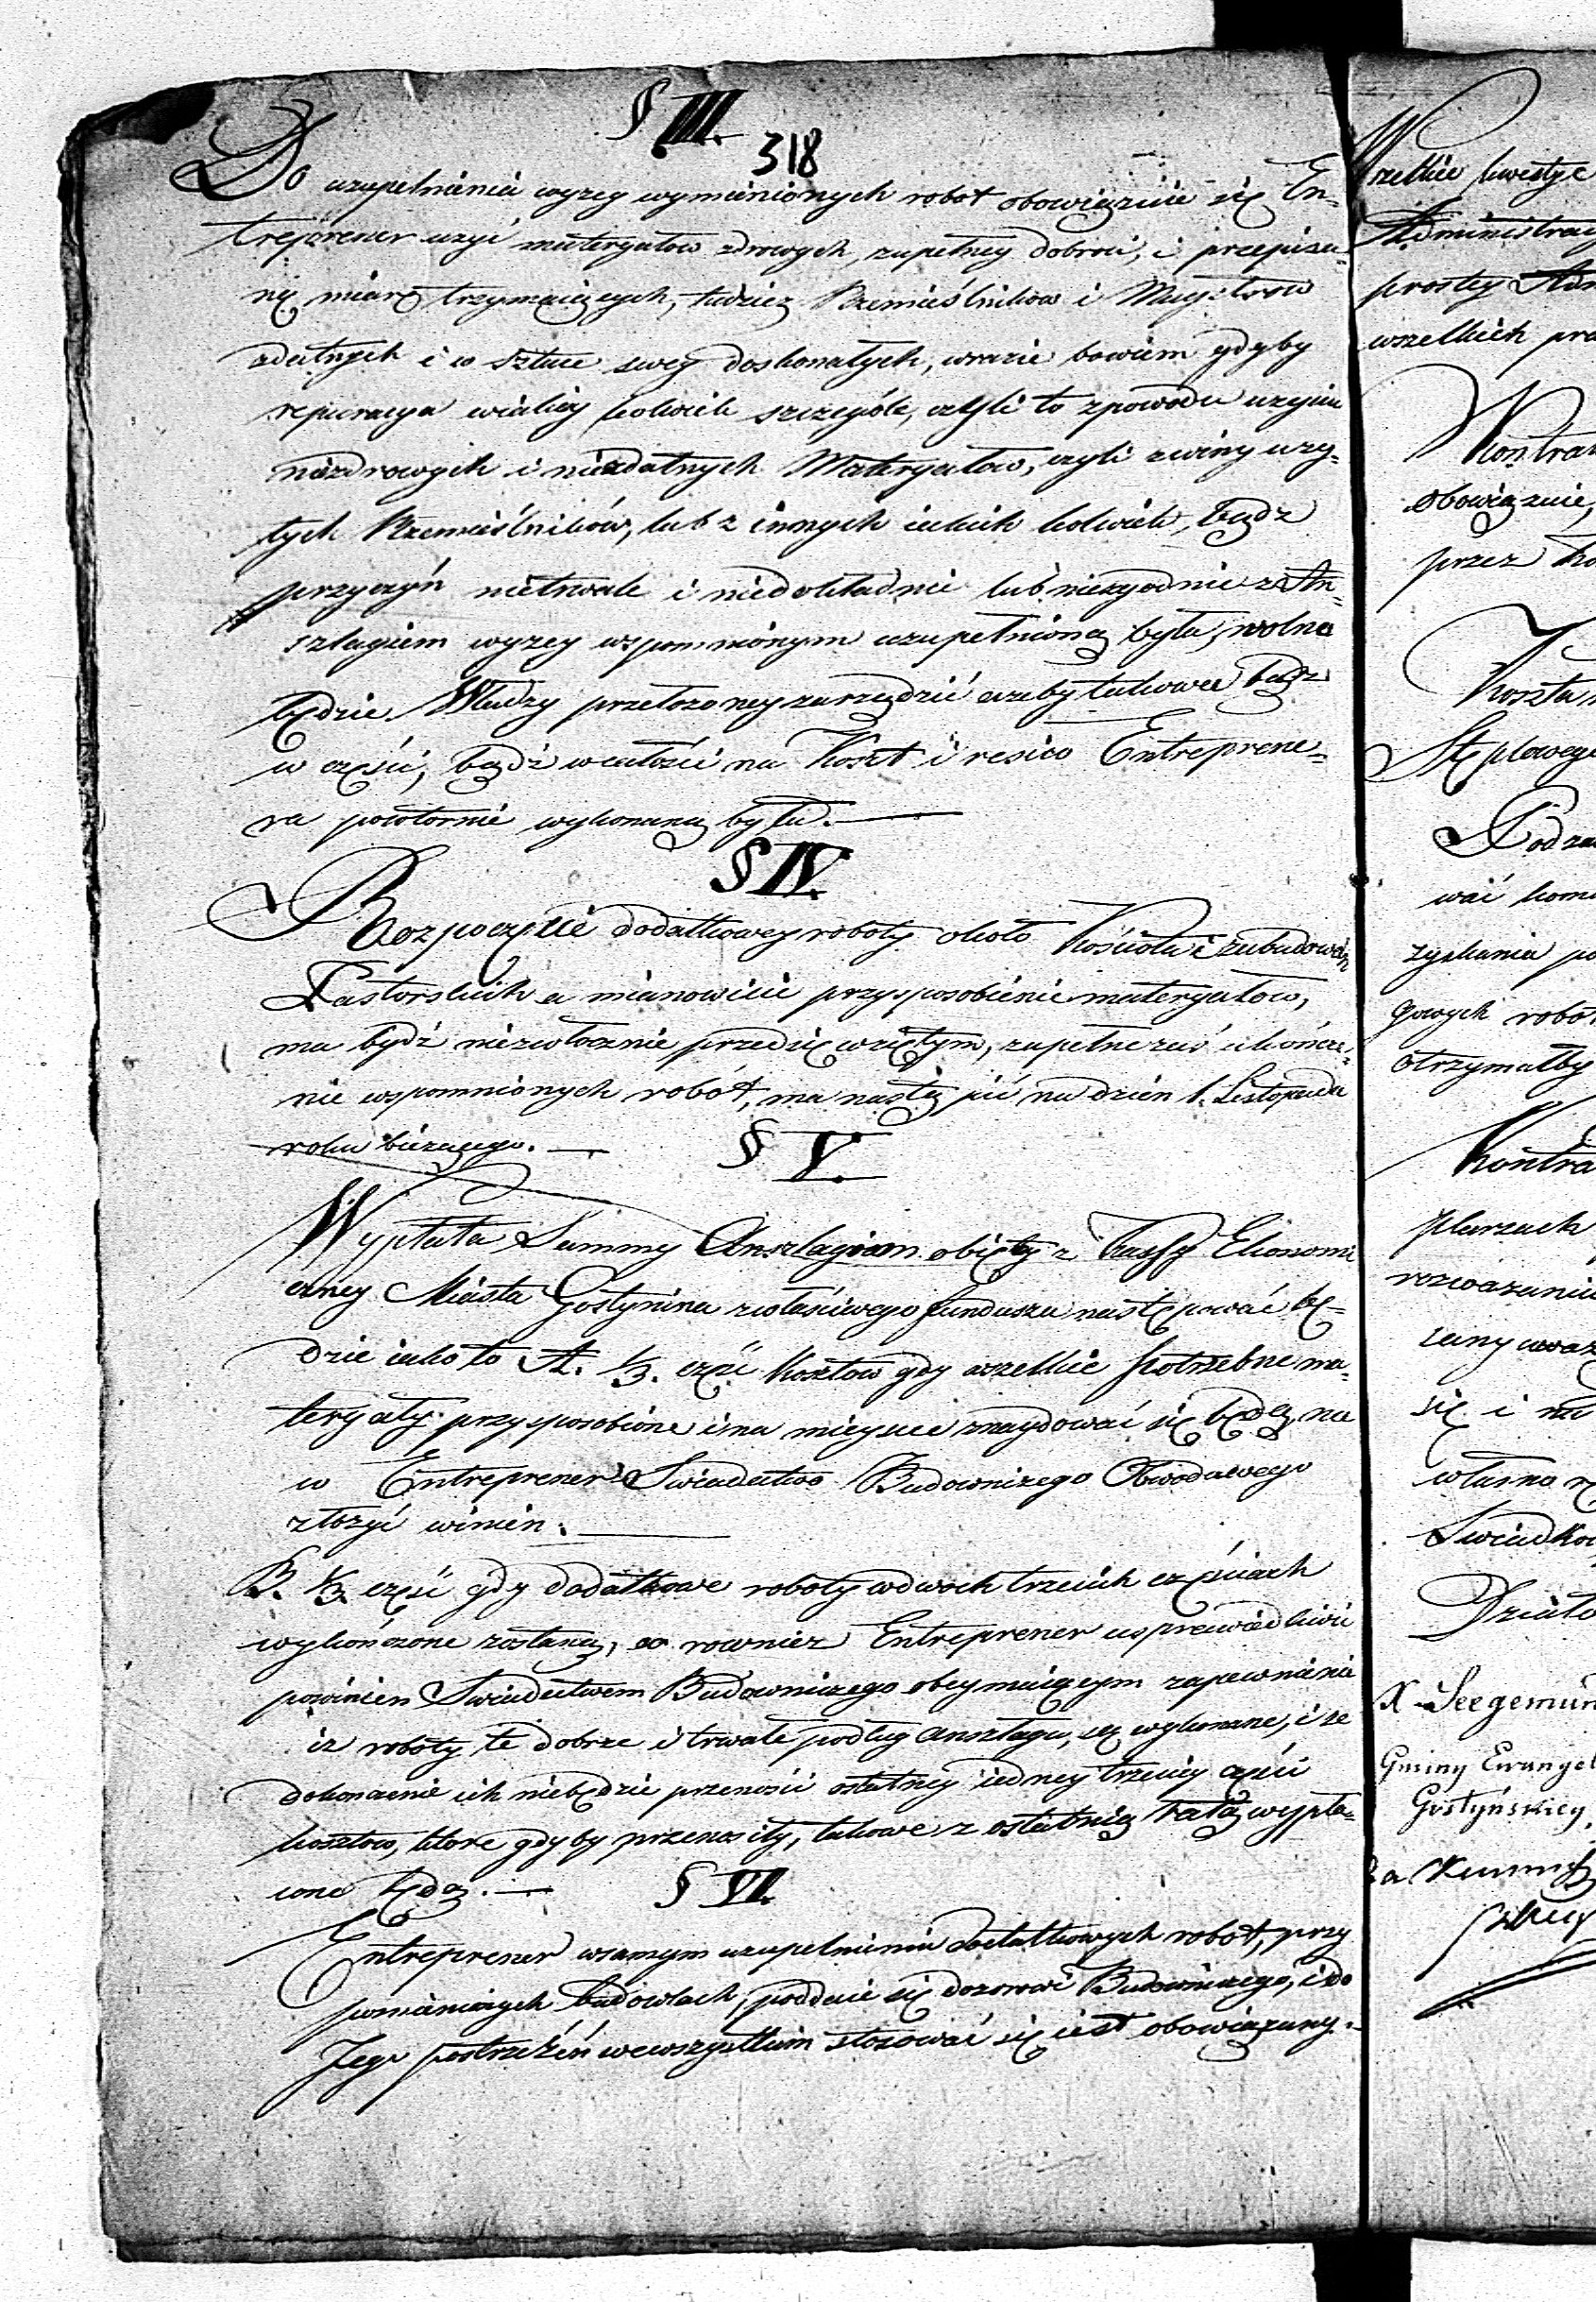 § III.
318
Do uzupełnienia wyzey wymienionych robot obowiązuie się En-
treprener uzyć materyałow zdrowych, zupełney dobroci, i przepisa-
ną miarę trzymaiących, tudziez Rzemieślnikow i Maystrow
zdatnych i w sztuce swey doskonałych, wrazie bowiem gdyby
reparacya wiakiey kolwiek szczególe, czyli to zpowodu uzycia
niezdrowych i niezdatnych Materyałow, czyli zwiny uzy-
tych Rzemieślników, lub z innych iakich kolwiek, bądz
przyczyń nietrwale i niedokładnie lub niezgodnie z An-
szlagiem wyzey wspomnionym uzupełnioną była, wolno
będzie Władzy przełozoney zarządzić azeby takowa bądz
w części, bądź wcałości na Koszt i resico Entreprene-
ra powtornie wykonaną była.
§ IV.
Rozpoczęcie dodatkowey roboty około Kościoła i zabudowań
Pastorskich a mianowicie przysposobienie materyałow,
ma bydź niezwłocznie przedsięwziętym, zupełne zaś ukończe-
nie wspomnionych robót, ma nastąpić na dzien 1. Listopada
roku biezącego.
§ V.
Wypłata Summy Anszlagiem obięty z Kassy Ekonomi
czney Miasta Gostynina zwłaściwego funduszu następować bę-
dzie iako to A. 1/3. część Kosztow gdy wszelkie potrzebne ma-
teryały przysposobione i na mieysce znaydować się będą, na
w Entreprener Swiadectwo Budowniczego Obwodowego
złozyć winien.
B. 1/3. część gdy dodatkowe roboty wdwoch trzecich częściach
wykończone zostaną, co rowniez Entreprener usprawiedliwić
powinien Swiadectwem Budowniczego obeymuiącym zapewnienie
iz roboty te dobrze i trwale podług anszlagu, są wykonane, i ze
dokonczenie ich niebędzie przenosić ostatney iedney trzeciey części
kosztow, ktore gdyby przenosiły, takowe z ostatnią ratą wypła-
cone będą.
§ VI.
Entreprener wsamym uzupełnieniu dodatkowych robot, przy
pomienionych budowlach, poddaie się dozorowi Budowniczego, i do
Jego postrzeżeń wewszystkiem stosować się iest obowiązany.
Wszelkie kwestye
Administracy
prostey Adm
wszelkich pra
Kontra
obowiązuie,
przez Ko
Koszta
Stęplowego
Podza
wać kom
zyskania po
gowych robot
otrzymałby
Kontra
plarzach
rozwazaniu
się i na
własno rę
Swiadko
Działo
X. Seegemün
Gminy Ewangel
Gostyńskiey